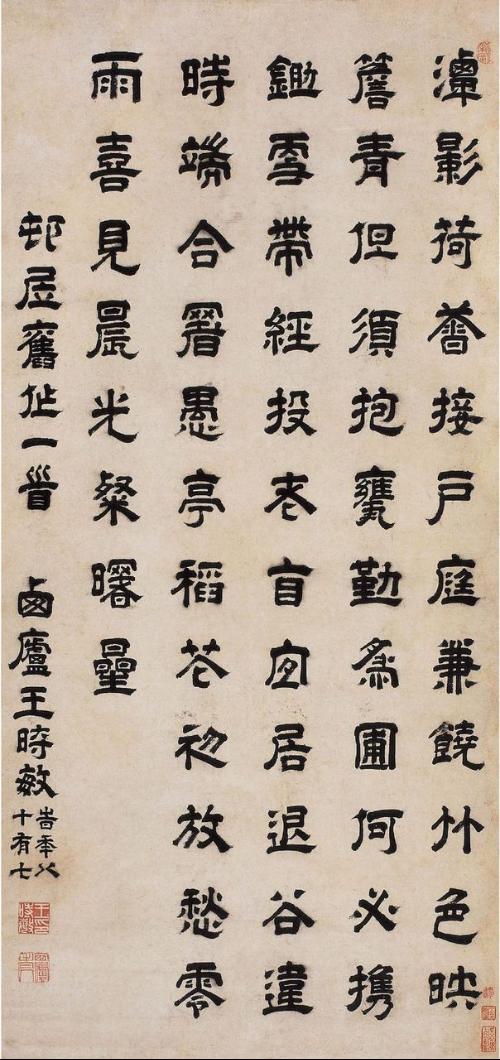 潭影荷萫接戶庭兼饒竹色映
簷青但須抱甕勤為圃何必携
鋤雪帶經投老盲宜居退谷違
時端合署愚亭稻花初放愁零
雨喜見晨光粲曙曐
邨居舊作一首 卤廬王時敏
旹年八
十有七